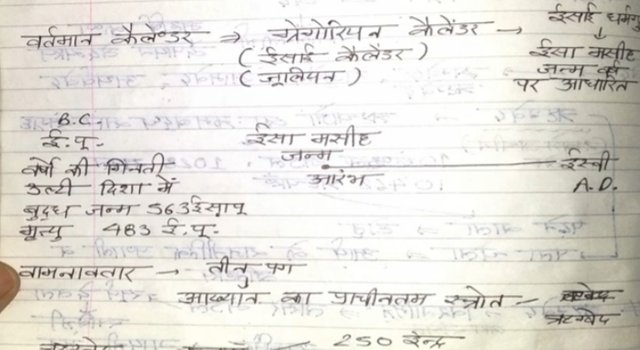 वर्तमान कैलेण्डर → ग्रेगोरियन कैलेंडर → ईसाई धर्म
(ईसाई कैलेंडर) ईसा मसीह
(जूलियन) जन्म
पर आधारित
B.C.
ई.पू. ईसा मसीह
जन्म
वर्षों की गिनती ईस्वी
उल्टी दिशा में आरंभ A.D.
बुद्ध जन्म 563 ईसापू
मृत्यु 483 ई.पू.
वामनावतार → तीनु पग
आख्यान का प्राचीनतम स्त्रोत -
ऋग्वेद
250 इन्द्र